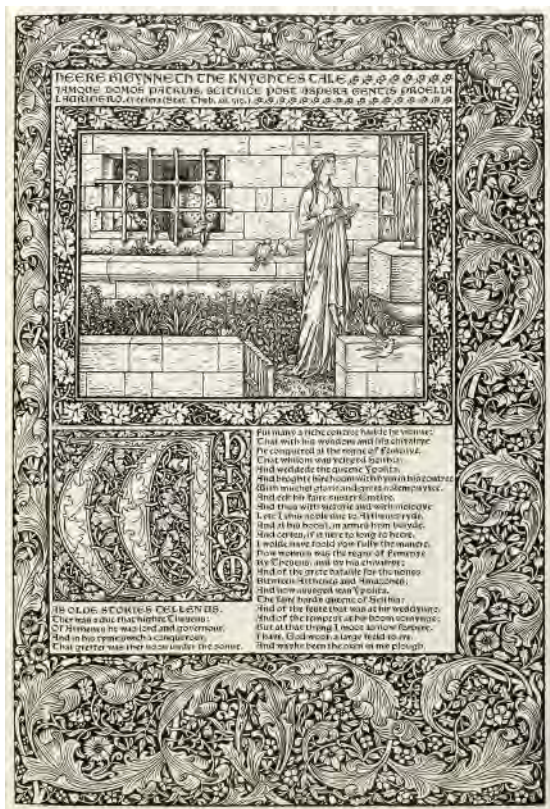 HEERE BIGYNNETH THE KNYGHTES TALE
IAMQUE DOMOS PATRIAS, SCITHICE POST ASPERA GENTIS PROELIA
LAURIGERO, et cetera (Stat. Theb. xii. 519.)
WHILOM
AS OLDE STORIES TELLEN US,
Ther was a duc that highte Theseus;
Of Atthenes he was lord and governour,
And in his tyme swich a conquerour,
That gretter was ther noon under the sonne.
Ful many a riche contree hadde he wonne;
That with his wysdom and his chivalrye
He conquered al the regne of Femenye,
That whilom was ycleped Scithia;
And weddede the queene Ypolita,
And broghte hire hoom with hym in his contree
With muchel glorie and greet solempnytee,
And eek hir faire suster Emelye.
And thus with victorie and with melodye
Lete I this noble duc to Atthenes ryde,
And al his hoost, in armes hym bisyde.
And certes, if it nere to long to heere,
I wolde have toold yow fully the manere,
How wonnen was the regne of Femenye
By Theseus, and by his chivalrye;
And of the grete bataille for the nones
Bitwixen Atthenes and Amazones;
And how asseged was Ypolita,
The faire hardy queene of Scithia;
And of the feste that was at hir weddynge,
And of the tempest at hir hoom comynge;
But al that thing I moot as now forbere.
I have, God woot, a large feeld to ere,
And wayke been the oxen in my plough.